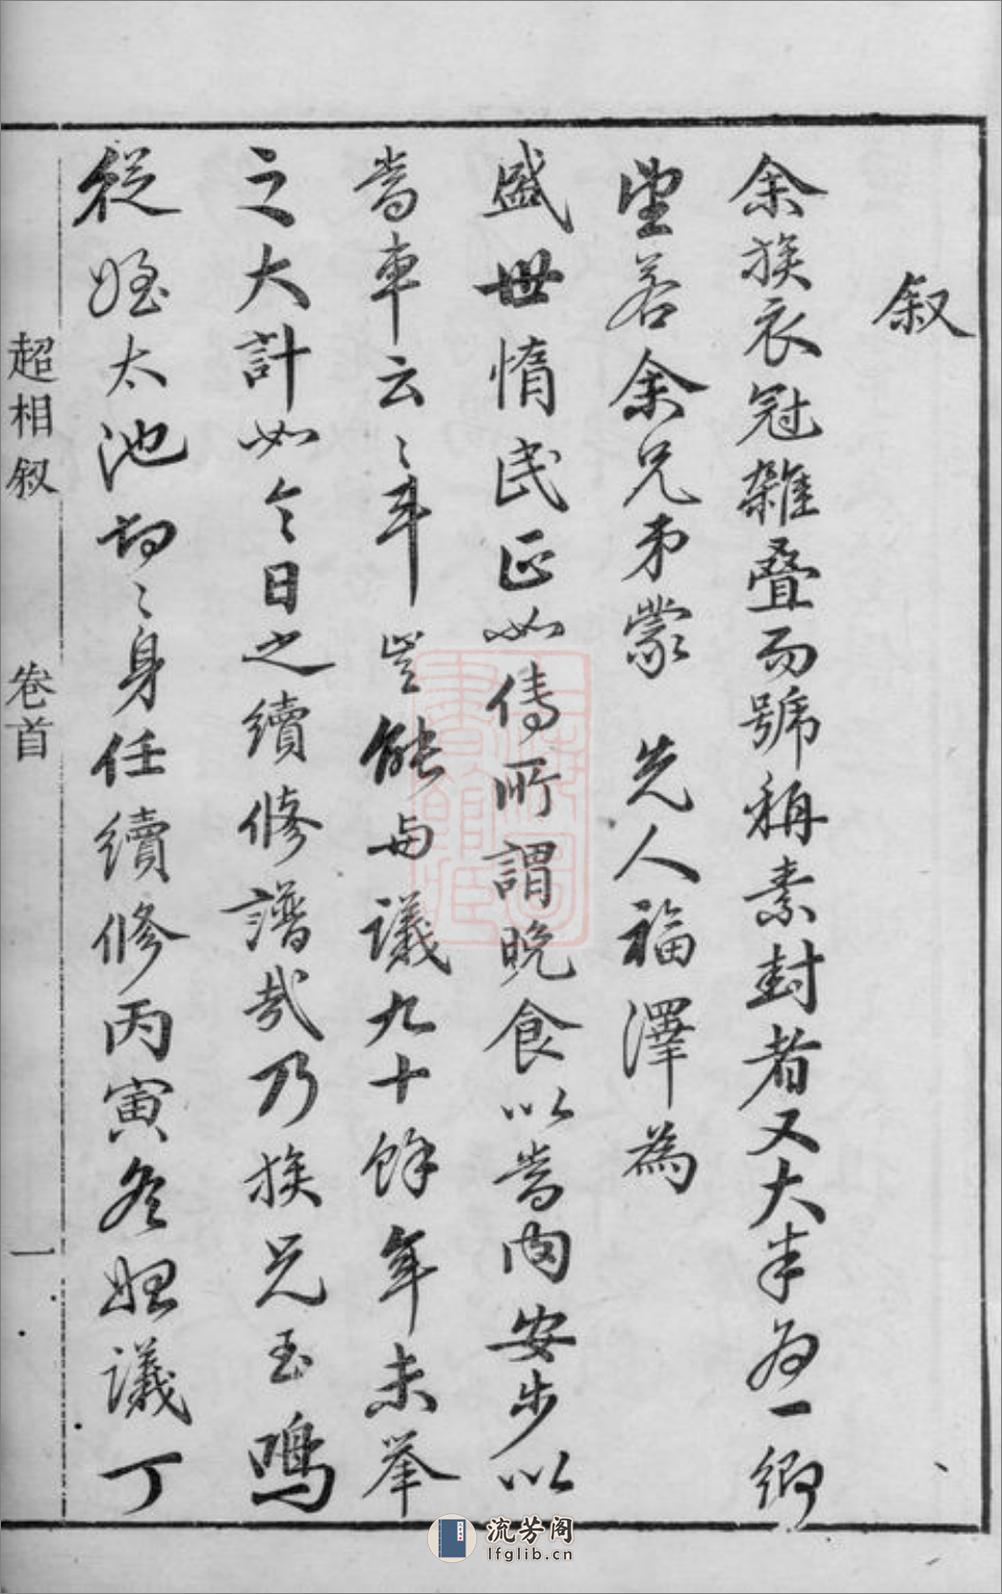 叙
余族衣冠雜叠而號稱素封者又大半為一鄉
望若余兄弟蒙 先人福澤為
盛世惰民正如傳所謂晚食以當肉安步以
當車云云耳豈能與議九十餘年未举
之大計如今日之續修譜哉乃族兄玉鳴
從姪太池切切身任續修丙寅冬始議丁
超相叙 卷首 一
流芳阁
lfglib.cn